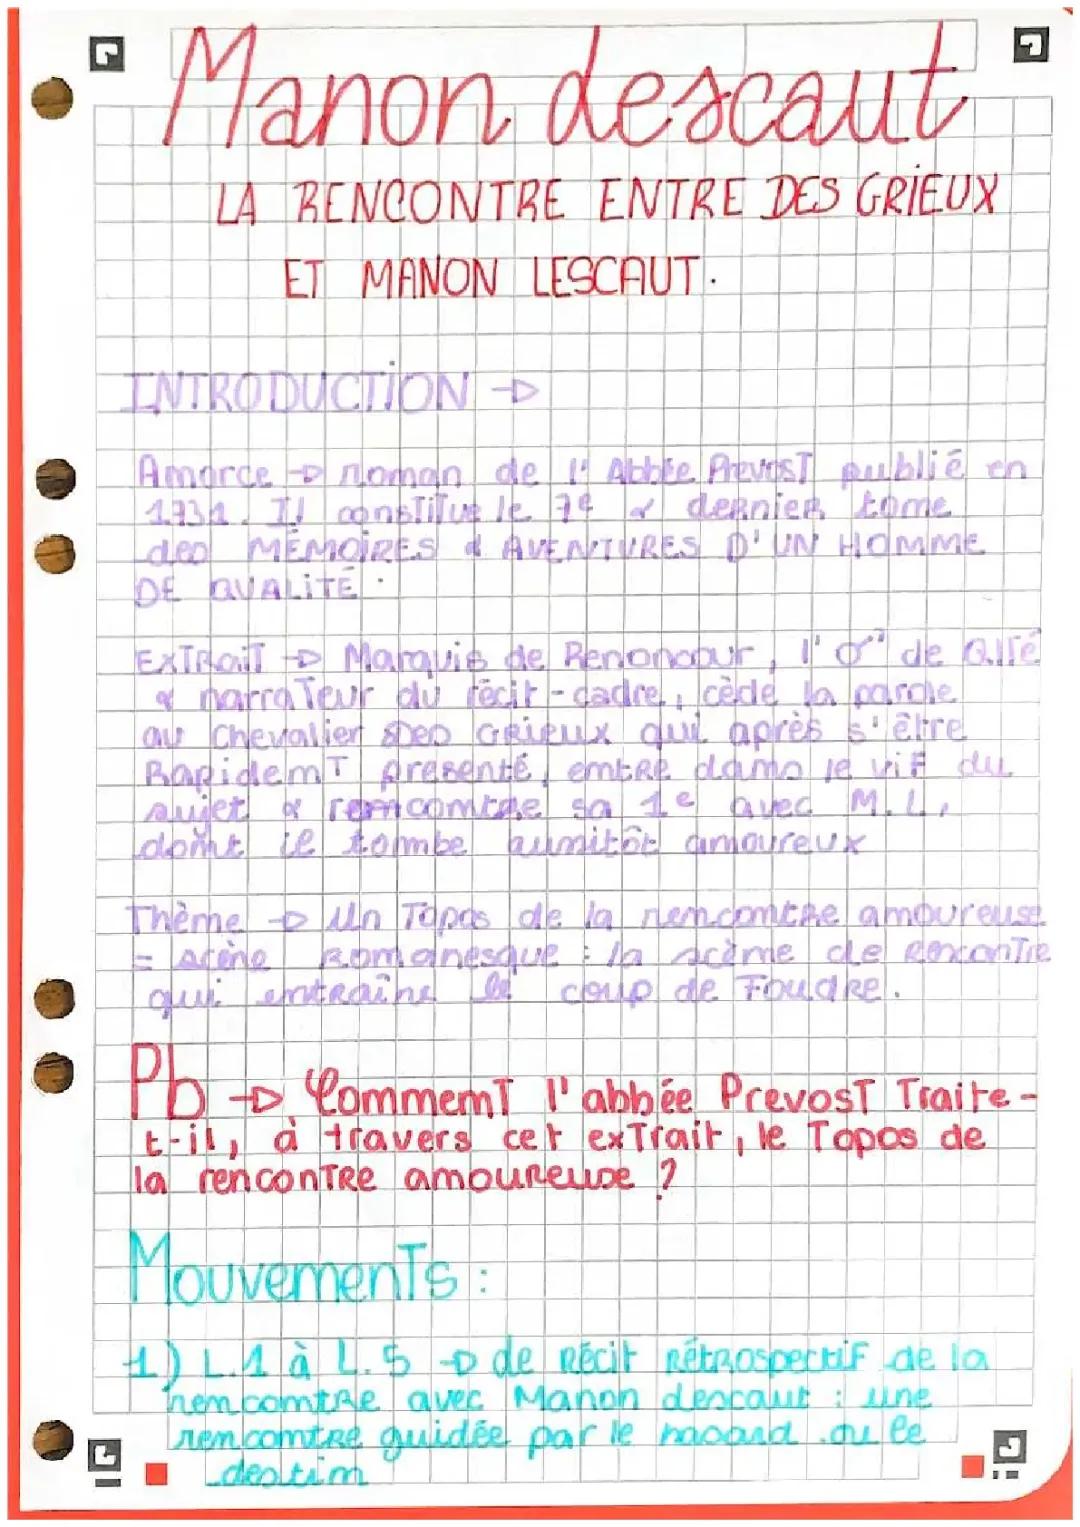 Manon descaut
LA RENCONTRE ENTRE DES GRIEUX
ET MANON LESCAUT.
INTRODUCTION →
Amorce → roman de l'Abbée PrevosT publié en
1731. Il consTiTue le 7e & dernier tome
des MÉMOIRES & AVENTURES D'UN HOMME
DE QUALITÉ.
EXTRAIT → Marquis de Renoncour, l'♂ de QlTé
& narraTeur du récit-cadre, cède la parole
au Chevalier Des Grieux qui après s'être
RapidemT présenté, entre dans le vif du
sujet & remcomtre sa 1e avec M.L,
dont il tombe aussitôt amoureux
Thème → Un Topos de la rencomtre amoureuse
= scène Romanesque : la scème de RenconTre
qui entraîne le coup de Foudre.
Pb → CommemT l'abbée PrevosT Traite-
t-il, à travers cet exTrait, le Topos de
la renconTRe amoureuse ?
MouvemenTs :
1) L.1 à L.5 → de Récit Rétrospectif de la
remcomtre avec Manon descaut : une
remcomtre guidée par le hasard ou le
destim